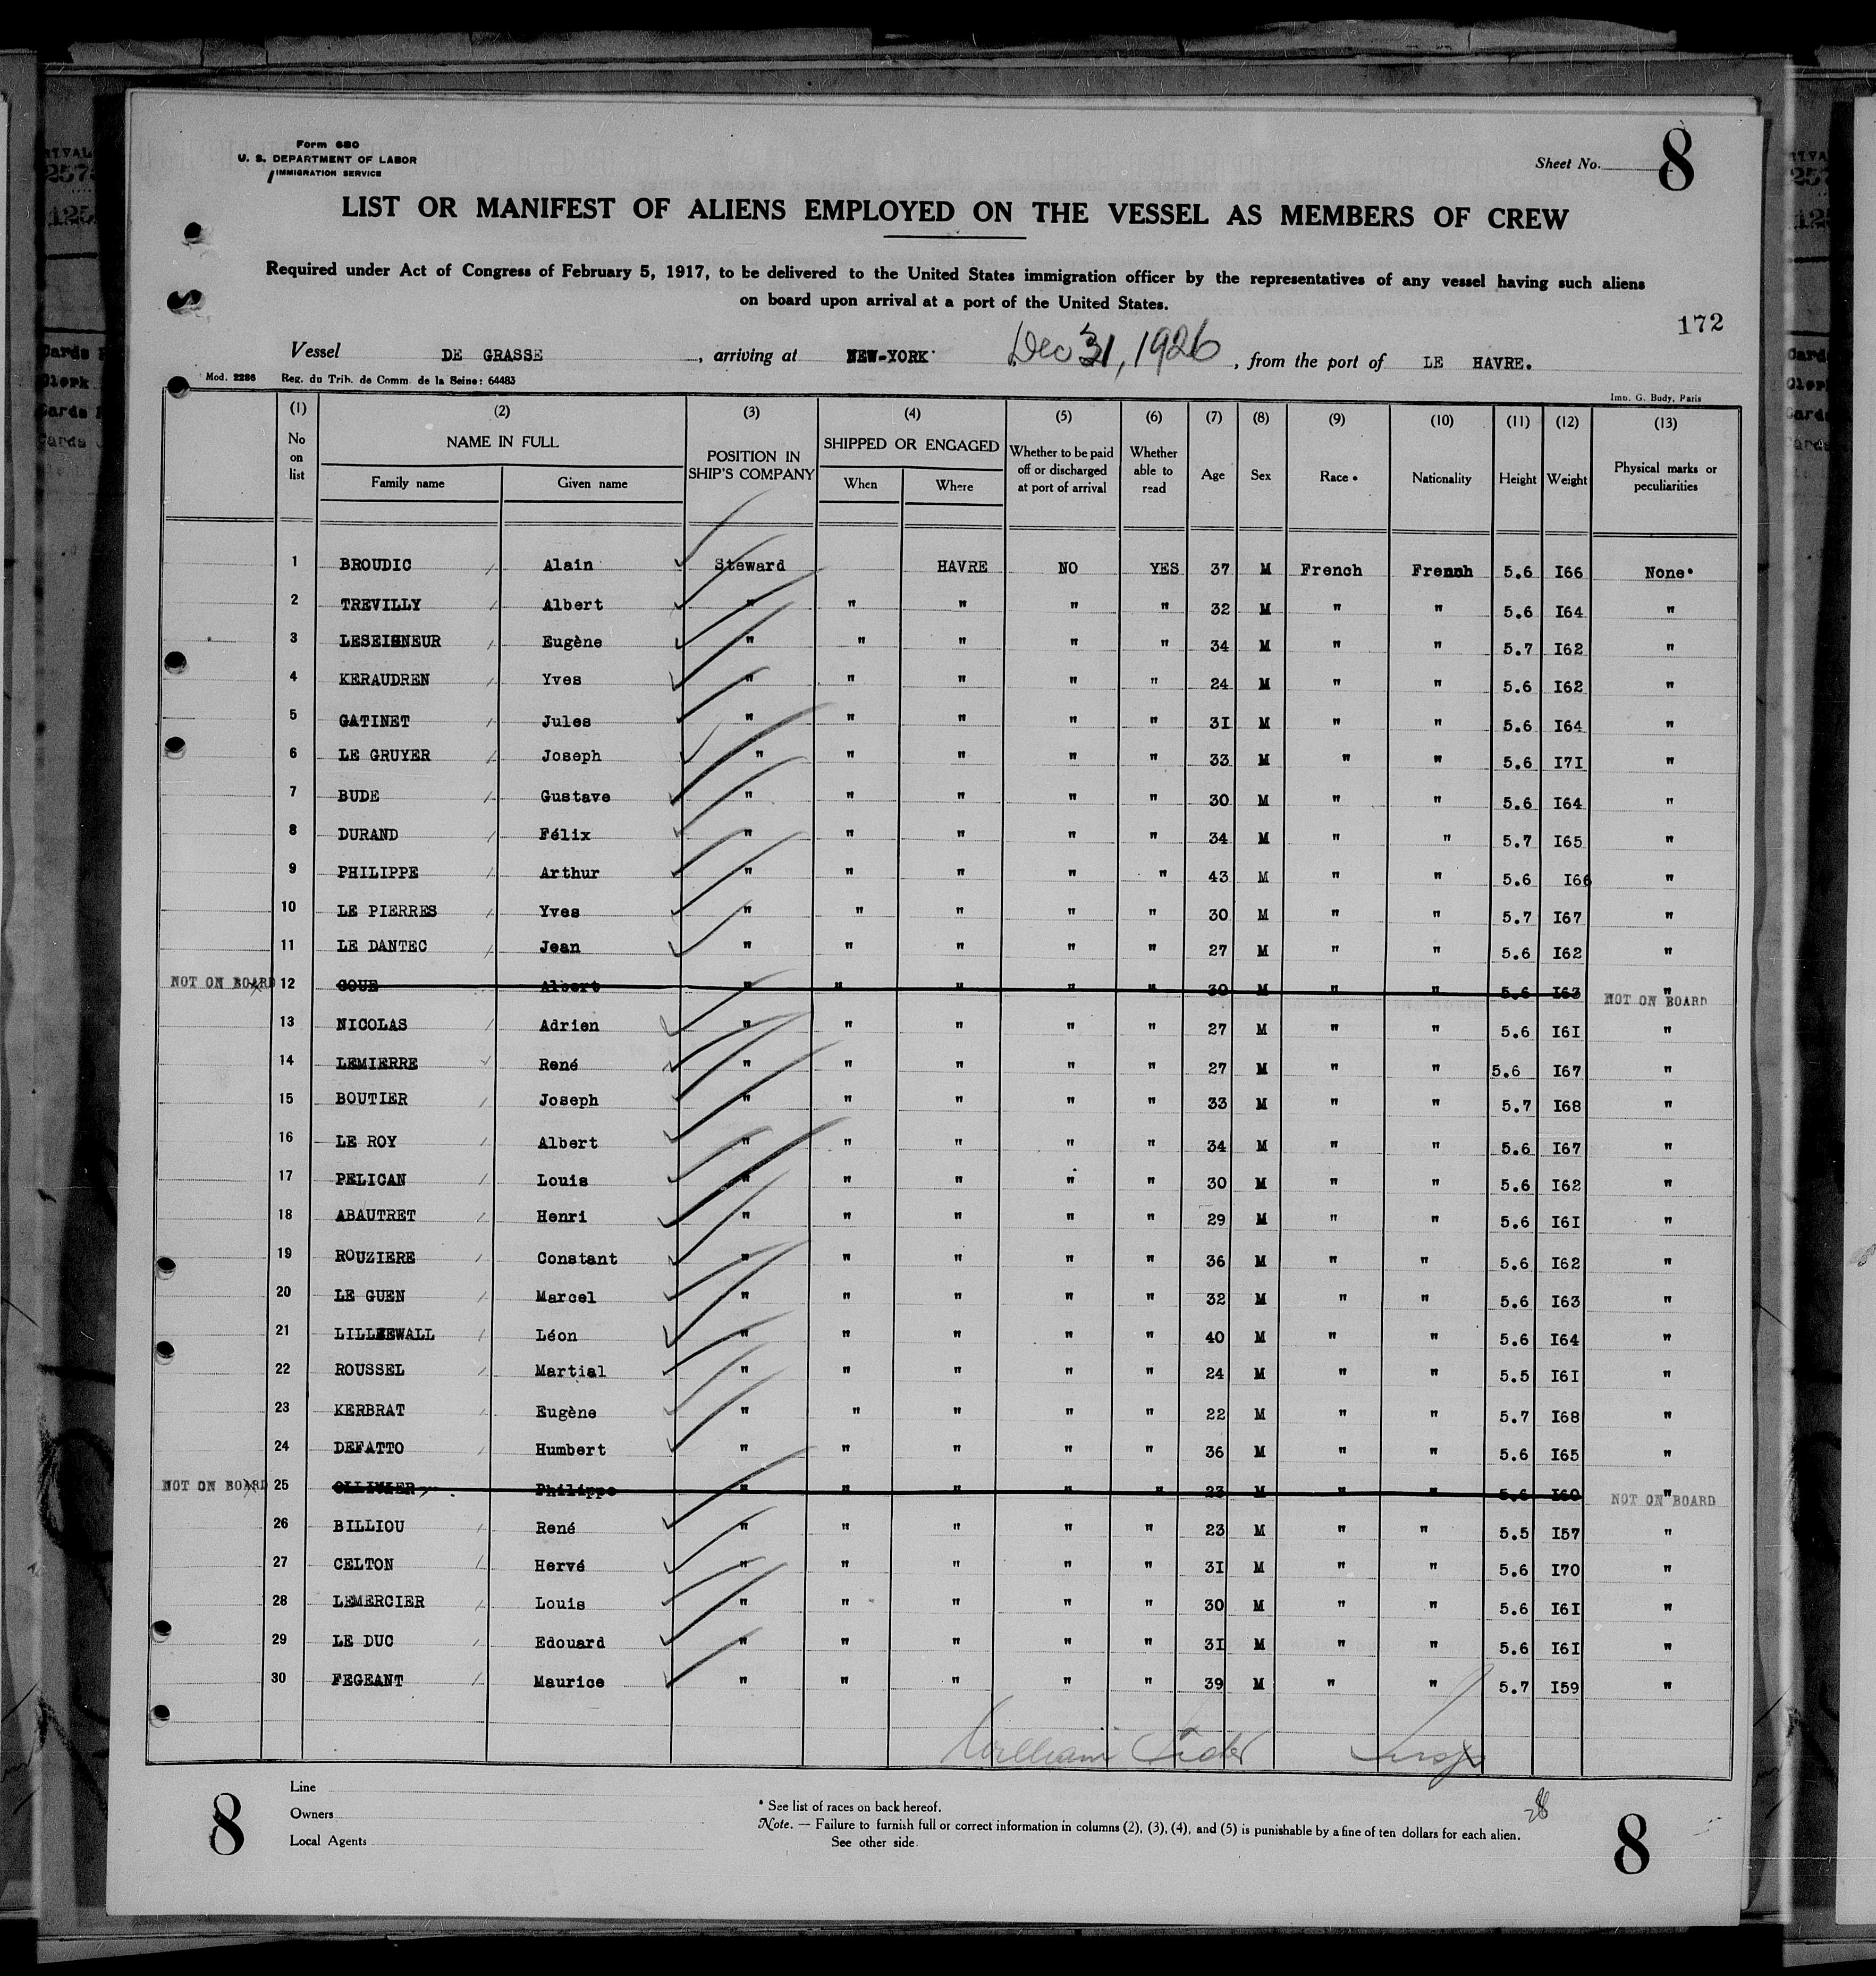 Form 680
U. S. DEPARTMENT OF LABOR
IMMIGRATION SERVICE
Sheet No. 8
LIST OR MANIFEST OF ALIENS EMPLOYED ON THE VESSEL AS MEMBERS OF CREW
Required under Act of Congress of February 5, 1917, to be delivered to the United States immigration officer by the representatives of any vessel having such aliens
on board upon arrival at a port of the United States.
172
Vessel DE GRASSE, arriving at NEW-YORK Dec 31, 1926, from the port of LE HAVRE.
Mod. 2286 Reg. du Trib. de Comm. de la Seine: 64483
Imp. G. Budy, Paris
(1) (2) (3) (4) (5) (6) (7) (8) (9) (10) (11) (12) (13)
No on list NAME IN FULL POSITION IN SHIP'S COMPANY SHIPPED OR ENGAGED Whether to be paid off or discharged at port of arrival Whether able to read Age Sex Race • Nationality Height Weight Physical marks or peculiarities
Family name Given name When Where
1 BROUDIC Alain Steward HAVRE NO YES 37 M French French 5.6 I66 None•
2 TREVILLY Albert " " " " " 32 M " " 5.6 I64 "
3 LESEIGNEUR Eugène " " " " " 34 M " " 5.7 I62 "
4 KERAUDREN Yves " " " " " 24 M " " 5.6 I62 "
5 GATINET Jules " " " " " 3I M " " 5.6 I64 "
6 LE GRUYER Joseph " " " " " 33 M " " 5.6 I7I "
7 BUDE Gustave " " " " " 30 M " " 5.6 I64 "
8 DURAND Félix " " " " " 34 M " " 5.7 I65 "
9 PHILIPPE Arthur " " " " " 43 M " " 5.6 I66 "
10 LE PIERRES Yves " " " " " 30 M " " 5.7 I67 "
11 LE DANTEC Jean " " " " " 27 M " " 5.6 I62 "
NOT ON BOARD 12 COUE Albert " " " " " 30 M " " 5.6 I63 " NOT ON BOARD
13 NICOLAS Adrien " " " " " 27 M " " 5.6 I6I "
14 LEMIERRE René " " " " " 27 M " " 5.6 I67 "
15 BOUTIER Joseph " " " " " 33 M " " 5.7 I68 "
16 LE ROY Albert " " " " " 34 M " " 5.6 I67 "
17 PELICAN Louis " " " " " 30 M " " 5.6 I62 "
18 ABAUTRET Henri " " " " " 29 M " " 5.6 I6I "
19 ROUZIERE Constant " " " " " 36 M " " 5.6 I62 "
20 LE GUEN Marcel " " " " " 32 M " " 5.6 I63 "
21 Léon " " " " " 40 M " " 5.6 I64 "
22 ROUSSEL Martial " " " " " 24 M " " 5.5 I6I "
23 KERBRAT Eugène " " " " " 22 M " " 5.7 I68 "
24 DEFATTO Humbert " " " " " 36 M " " 5.6 I65 "
NOT ON BOARD 25 OLLIVIER Philippe " " " " " 23 M " " 5.6 I60 " NOT ON BOARD
26 BILLIOU René " " " " " 23 M " " 5.5 I57 "
27 CELTON Hervé " " " " " 3I M " " 5.6 I70 "
28 LEMERCIER Louis " " " " " 30 M " " 5.6 I6I "
29 LE DUC Edouard " " " " " 3I M " " 5.6 I6I "
30 FEGEANT Maurice " " " " " 39 M " " 5.7 I59 "
William
Line
Owners
Local Agents
* See list of races on back hereof.
Note. — Failure to furnish full or correct information in columns (2), (3), (4), and (5) is punishable by a fine of ten dollars for each alien.
See other side.
8
28
8